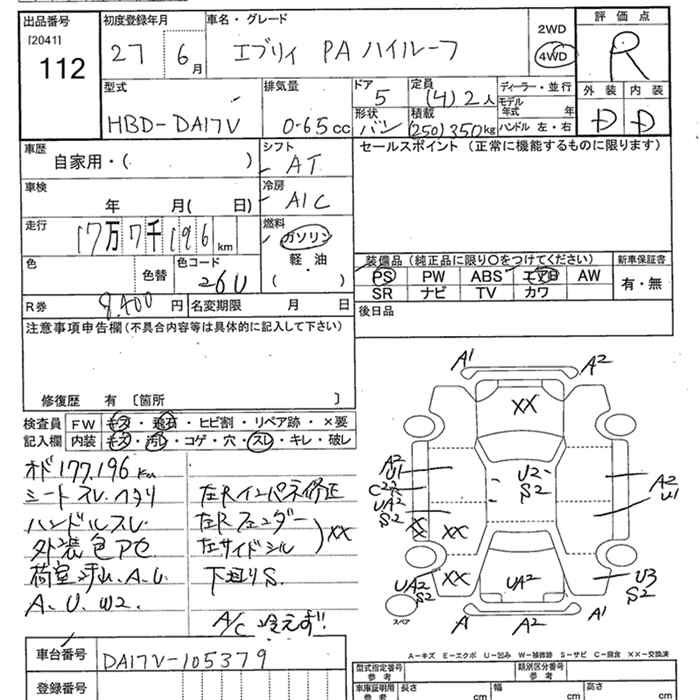 出品番号
[2041]
112
初度登録年月
27 6月
車名・グレード
エブリィ PA ハイルーフ
2WD
4WD
評価点
R
外装 内装
D D
型式
HBD-DA17V
排気量
0.65cc
ドア
5
定員
(4) 2人
形状
バン
積載
(250) 350kg
ディーラー・並行
モデル年式 年
ハンドル 左・右
車歴
自家用・( )
シフト
AT
車検
年 月( 日)
冷房
A/C
走行
17万7千196km
燃料
ガソリン
軽・油
( )
色
色替
色コード
26U
R券 8,400円
名変期限 月 日
セールスポイント (正常に機能するものに限ります)
装備品 (純正品に限り○をつけてください)
PS PW ABS エアB AW
SR ナビ TV カワ
新車保証書
有・無
後日品
注意事項申告欄 (不具合内容等は具体的に記入して下さい)
修復歴 有 [箇所 ]
検査員記入欄
FW キズ・飛石・ヒビ割・リペア跡・×要
内装 キズ・汚レ・コゲ・穴・スレ・キレ・破レ
オド177,196km
シートスレ、ヘタリ
ハンドルスレ
外装色アセ
荷室汚レ、A.U.
A、U、W2
左Rインパネ修正
左Rフェンダー
左サイドシル
XX
下廻りS
A/C 冷えず!!
A1 A2
XX
A2
U1
U2
S2
A2
U1
UA2
S2
XX
XX
XX
UA2
S2
UA2
U3
S2
スペア
A1 A2 A1
A-キズ E-エクボ U-凹み W-補修跡 S-サビ C-腐食 XX-交換済
車台番号
DA17V-105379
登録番号
型式指定番号
参考
類別区分番号
参考
車庫証明用
参考
長さ cm
幅 cm
高さ cm